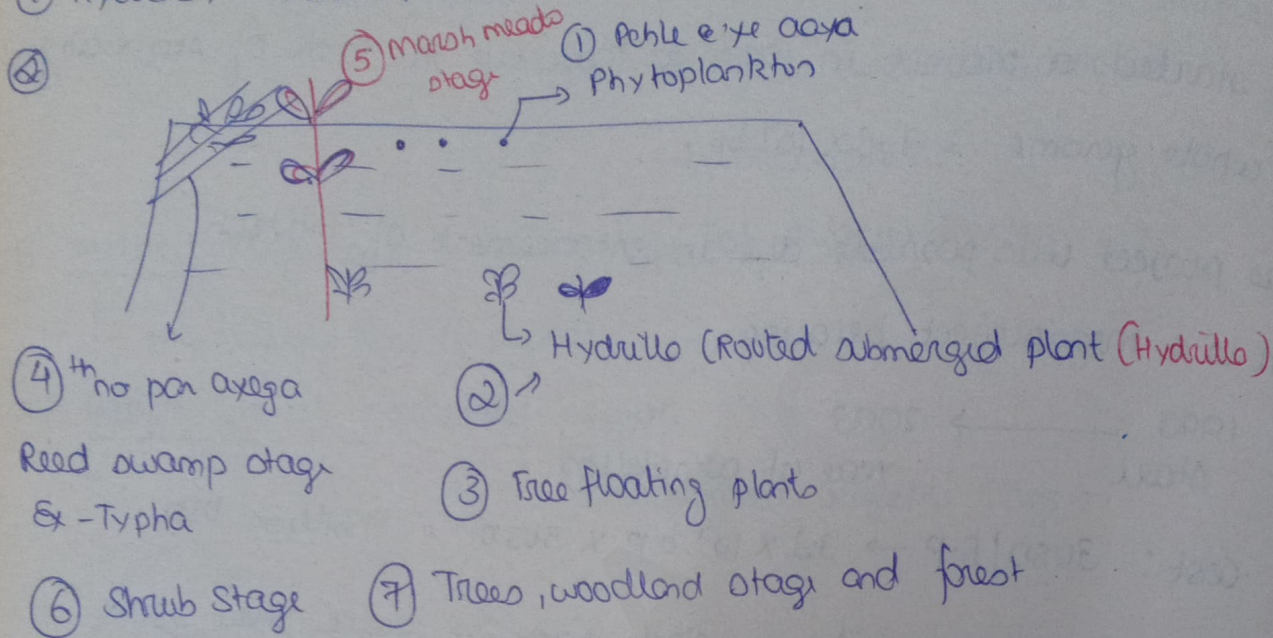 ⑤ Marsh meado
stage
① Pehle e ye aaya
Phytoplankton
Hydrillo (Routed submerged plant (Hydrillo)
④ th no par ayega
Reed swamp stage
Ex - Typha
②
③ Free floating plants
⑥ Shrub Stage
⑦ Trees, woodland stage and forest